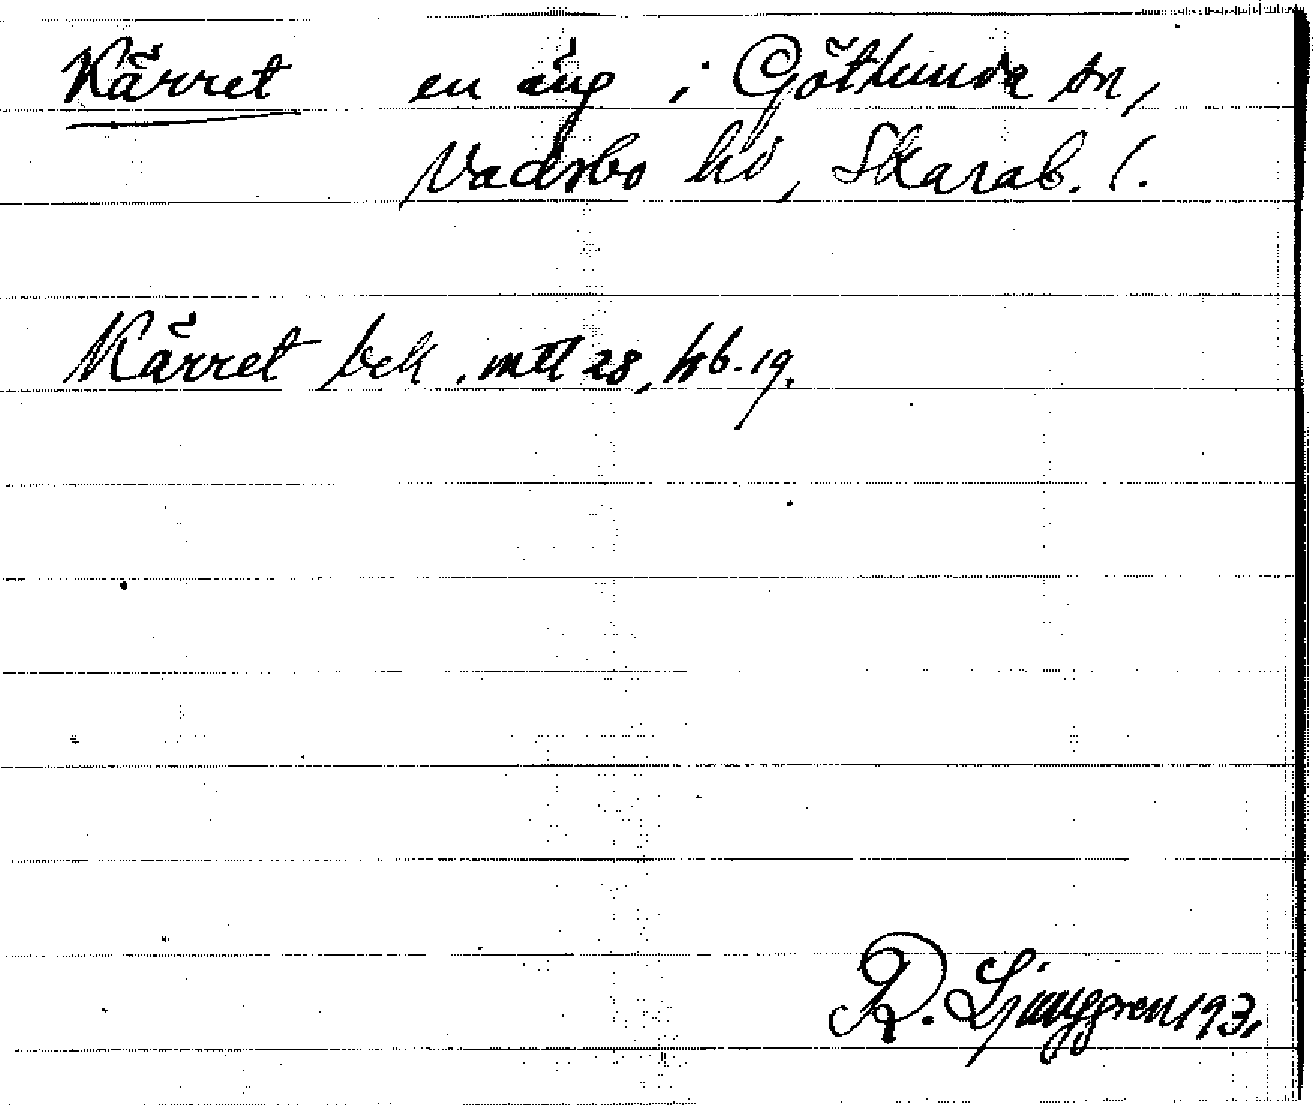 Kärret en äng i Götlunda sn,
Vadsbo hd, Skarab. l.
Kärret bek. mtl 28, kb. 19.
R. Ljunggren 1931